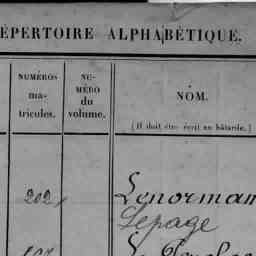 RÉPERTOIRE ALPHABÉTIQUE.
NUMÉROS
ma-
tricules.
NU-
MÉRO
du
volume.
NOM.
(Il doit être écrit en bâtarde.)
202
Lenorman
Lepage